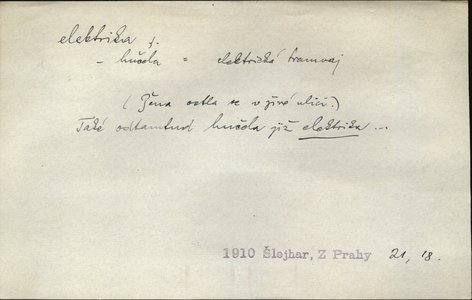 elektrika f.
– hučela = elektrická tramvaj
(Žena octla se v živé ulici.)
Také odtamtud hučela již elektrika ...
1910 Šlejhar, Z Prahy 21, 18.